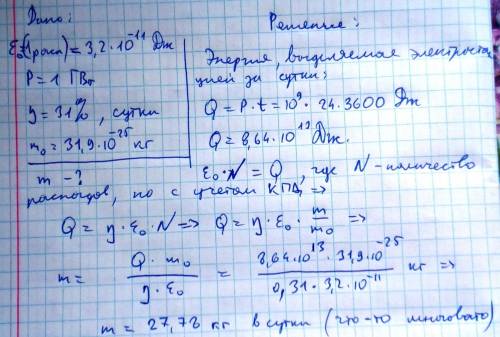 Дано:
Решение:
E₀(1 распа) = 3,2·10⁻¹¹ Дж
P = 1 ГВт
η = 31%, сутки
m₀ = 31,9·10⁻²⁵ кг
m - ?
Энергия, выделяемая электростан
цией за сутки:
Q = P·t = 10⁹ · 24·3600 Дж
Q = 8,64·10¹³ Дж.
ε₀·N = Q, где N - количество
распадов, но с учетом КПД =>
Q = η·ε₀·N => Q = η·ε₀· m/m₀ =>
m = Q·m₀ / η·ε₀ = 8,64·10¹³·31,9·10⁻²⁵ / 0,31·3,2·10⁻¹¹ кг =>
m = 27,78 кг в сутки (что-то многовато)